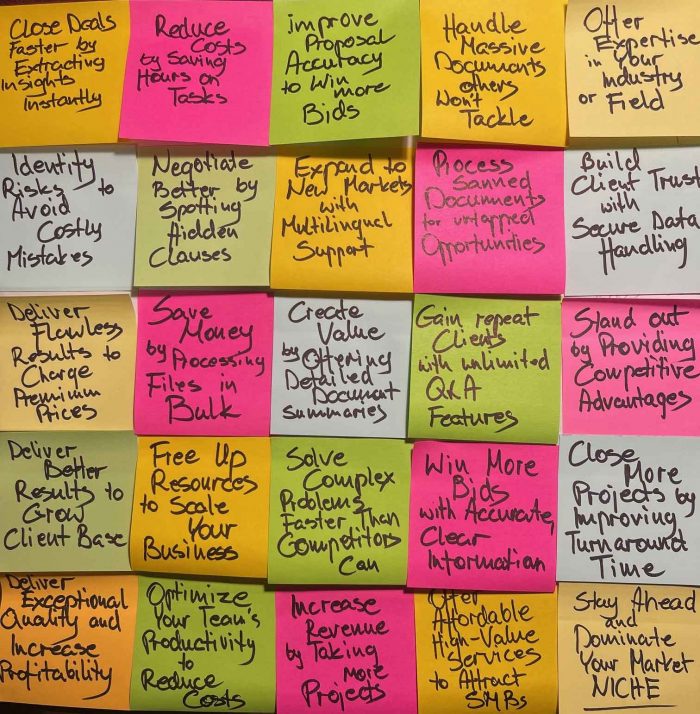 Close Deals
Faster by
Extracting
Insights
Instantly
Reduce
Costs
by Saving
Hours on
Tasks
improve
Proposal
Accuracy
to Win
more
Bids
Handle
Massive
Documents
others
Won't
Tackle
Offer
Expertise
in Your
Industry
or Field
Identity
Risks to
Avoid
Costly
Mistakes
Negotiate
Better by
Spotting
Hidden
Clauses
Expand to
New Markets
with
Multilingual
Support
Process
Sanned
Documents
for untapped
Opportunities
Build
Client Trust
with
Secure Data
Handling
Deliver
Flawless
Results to
Charge
Premimum
Prices
Save
Money
by Processing
Files in
Bulk
Create
Value
by Offering
Detailed
Document
summaries
Gain repeat
Clients
with unlimited
Q&A
Features
Stand out
by Providing
Competitive
Advantages
Deliver
Better
Results to
Grow
Client Base
Free Up
Resources
to Scale
Your
Business
Solve
Complex
Problems
Faster Than
Competitors
Can
Win More
Bids
with Accurate,
Clear
Information
Close
More
Projects by
Improving
Turnaround
Time
Deliver
Exceptional
Quality and
Increase
Profitability
Optimize
Your Team's
Productivity
to
Reduce
Costs
Increase
Revenue
by Taking
more
Projects
Offer
Affordable
High-Value
Services
to Attract
SMBs
Stay Ahead
and
Dominate
Your Market
NICHE